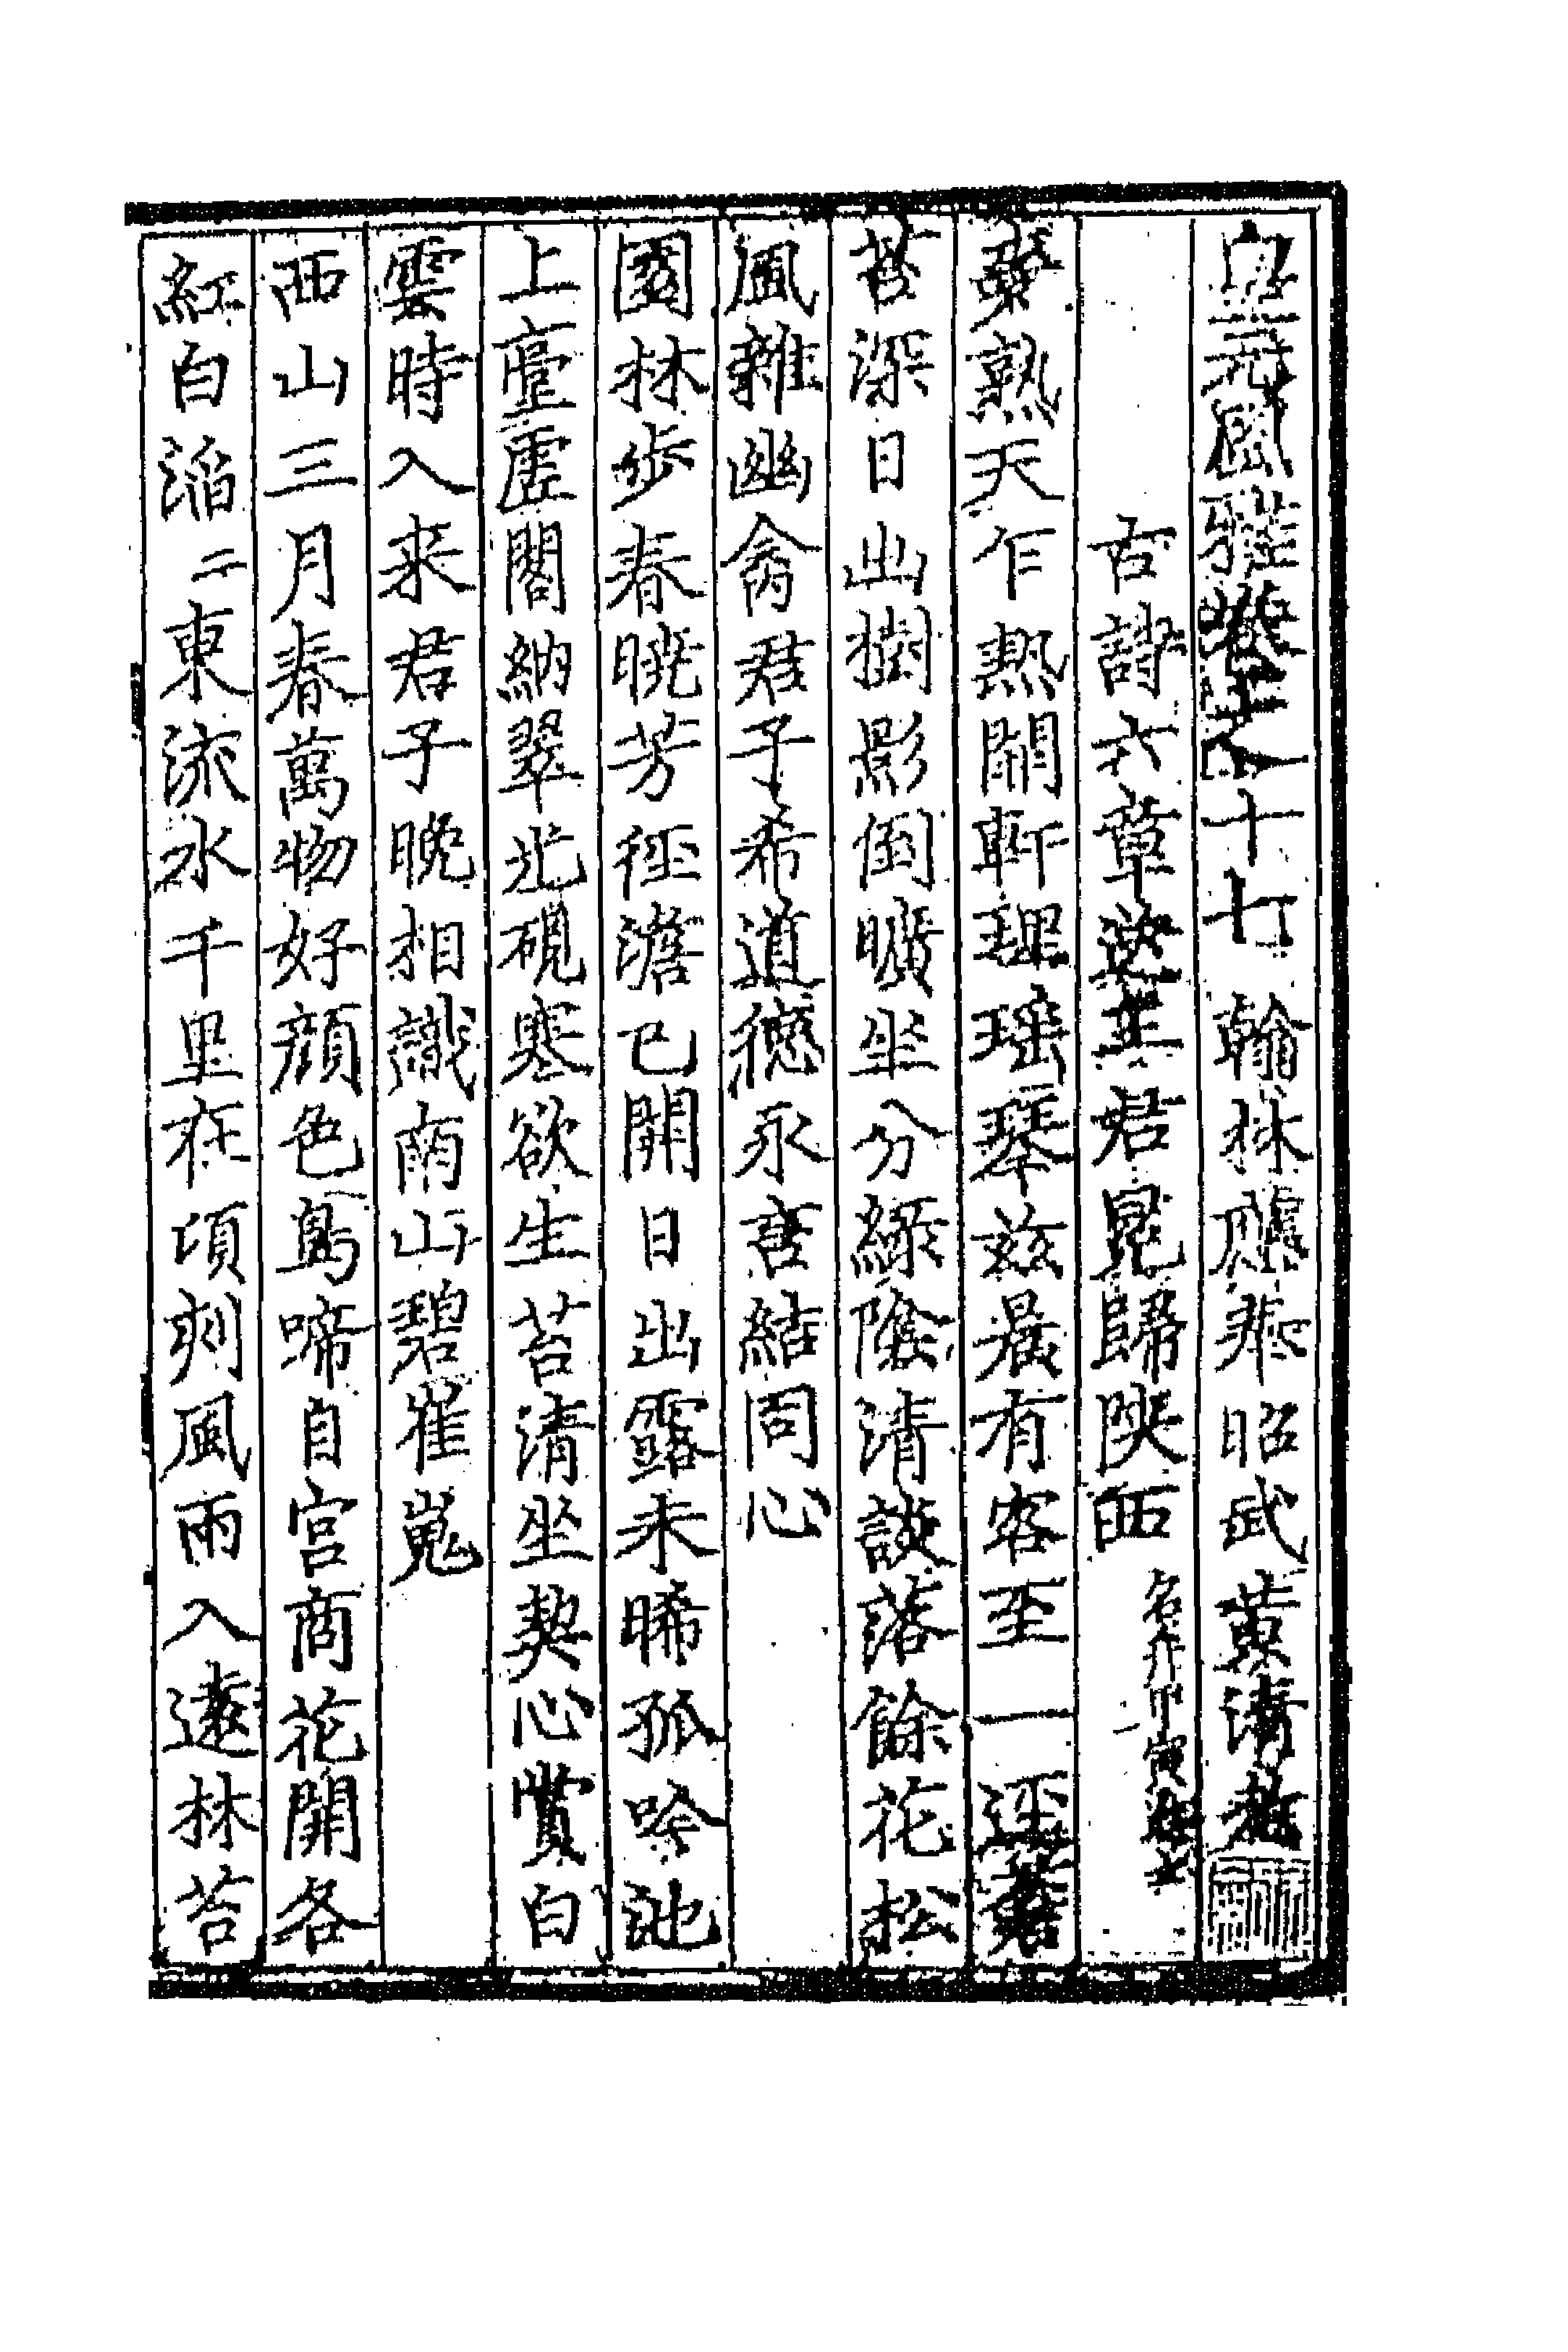 皇元風雅卷之十七 翰林應奉昭武黃清老
古詩六章 君冕歸陜西
麥熟天乍熱開軒理瑤琴茲晨有客至一逕蒼
苔深日出樹影倒曠坐分綠陰清談落餘花松
風雜幽禽君子希道德永言結同心
園林步春晚芳徑澹已開日出露未晞孤吟池
上臺虛閣納翠光硯寒欲生苔清坐契心賞白
雲時入來君子晚相識商山碧崔嵬
西山三月春萬物好顏色鳥啼自宮商花開各
紅白滔〻東流水千里在頃刻風雨入遠林苔